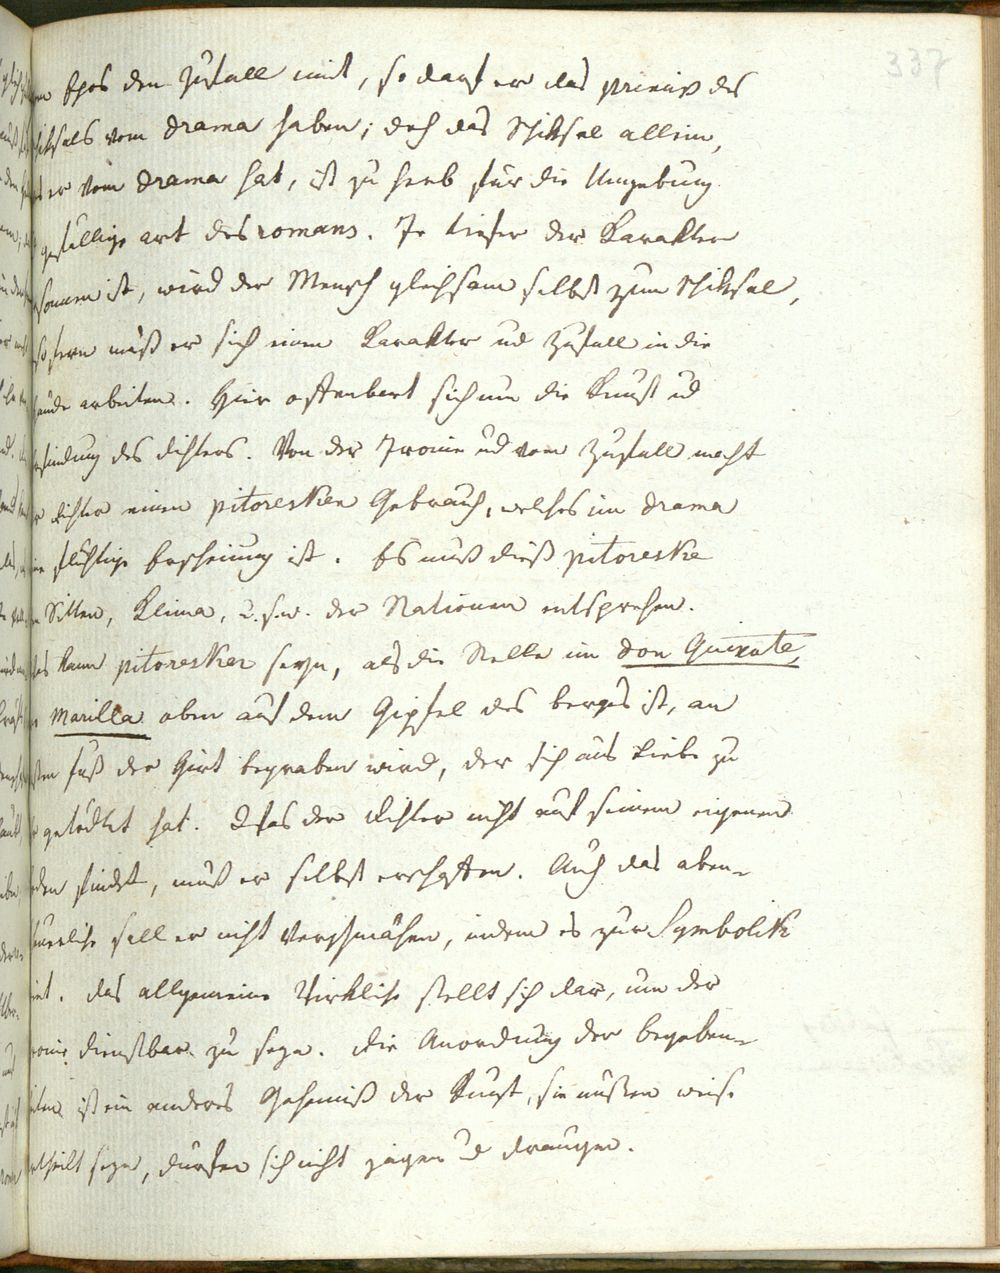 337
Epos den Zufall mit, so darf er das princip des
vom Drama haben; doch das Schiksal allein,
er vom Drama hat, ist zu herb für die Umgebung
gefällige art des romans. Je tiefer der Karakter
ist, wird der Mensch gleichsam selbst zum Schiksal,
fern muß er sich einen Karakter ud Zufall in die
Hände arbeiten. Hier offenbart sich nun die Kunst ud
Erfindung des Dichters. Von der Ironie ud vom Zufall macht
Dichter einen pitoresken Gebrauch, welches im Drama
flüchtige Erscheinung ist. Es muß dieß pitoreske
Sitten, Klima, u.s.w. der Nationen entsprechen.
kann pitoresker seyn, als die Stelle im Don Quixote,
Marilla oben auf dem Gipfel des berges ist, an
fuß der Hirt begraben wird, der sich aus Liebe zu
getödtet hat. Was der Dichter nicht auf seinem eigenen
findet, muß er selbst erschaffen. Auch das aben-
soll er nicht verschmähen, indem es zur Symbolik
das allgemeine Wirkliche stellt sich dar, um der
dienstbar zu seyn. Die Anordnung der begeben-
ist ein anderes Geheimniß der Kunst, sie müßen weise
seyn, dürfen sich nicht jagen ud drängen.